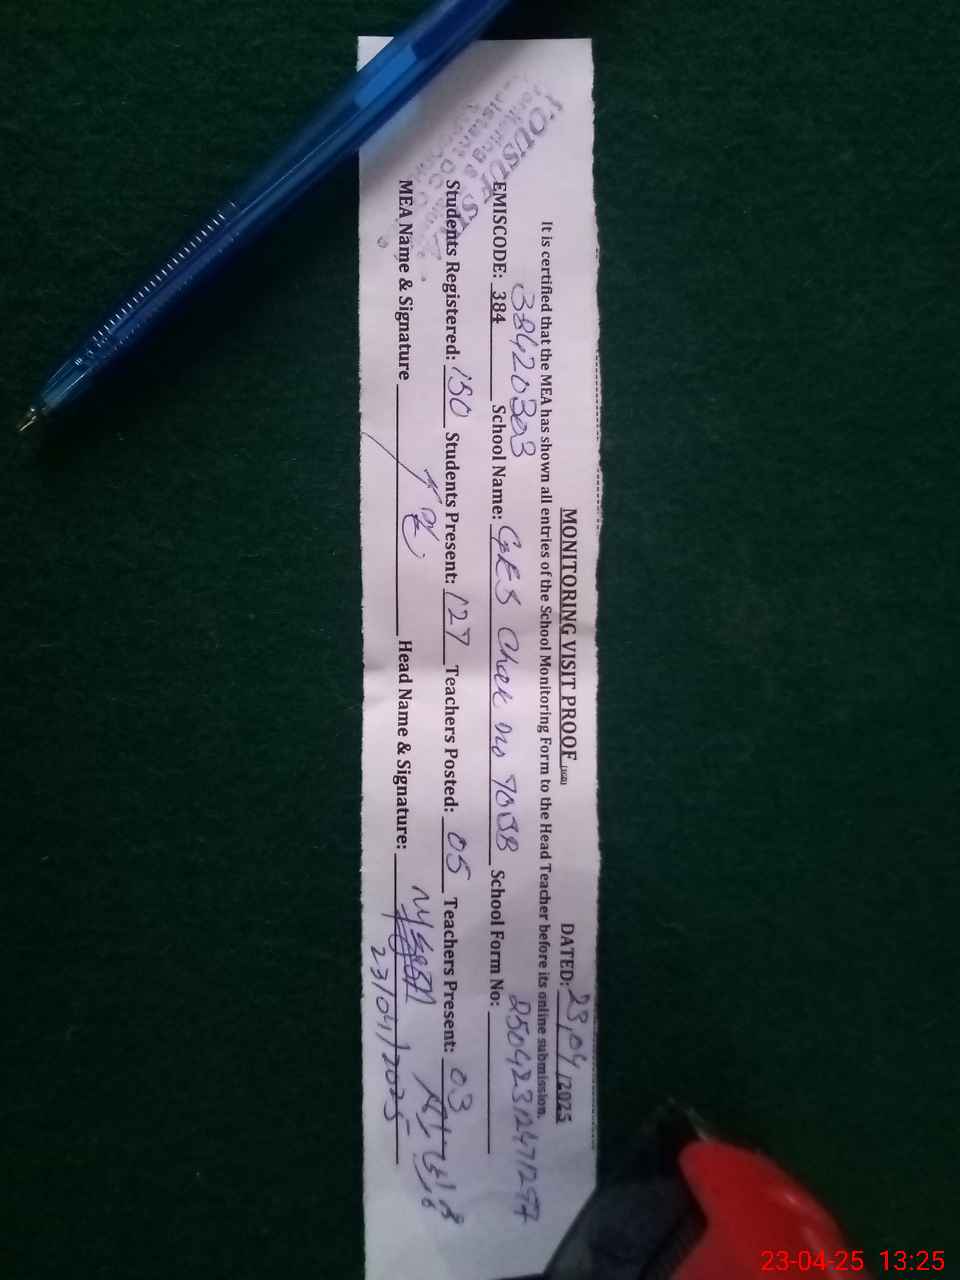 MONITORING VISIT PROOF DATED: 23/04/2025
It is certified that the MEA has shown all entries of the School Monitoring Form to the Head Teacher before its online submission.
EMISCODE: 384 38420303 School Name: GES Chak No 90SB School Form No:
Students Registered: 150 Students Present: 127 Teachers Posted: 05 Teachers Present: 03
MEA Name & Signature Head Name & Signature:
23/04/2025
23-04-25 13:25